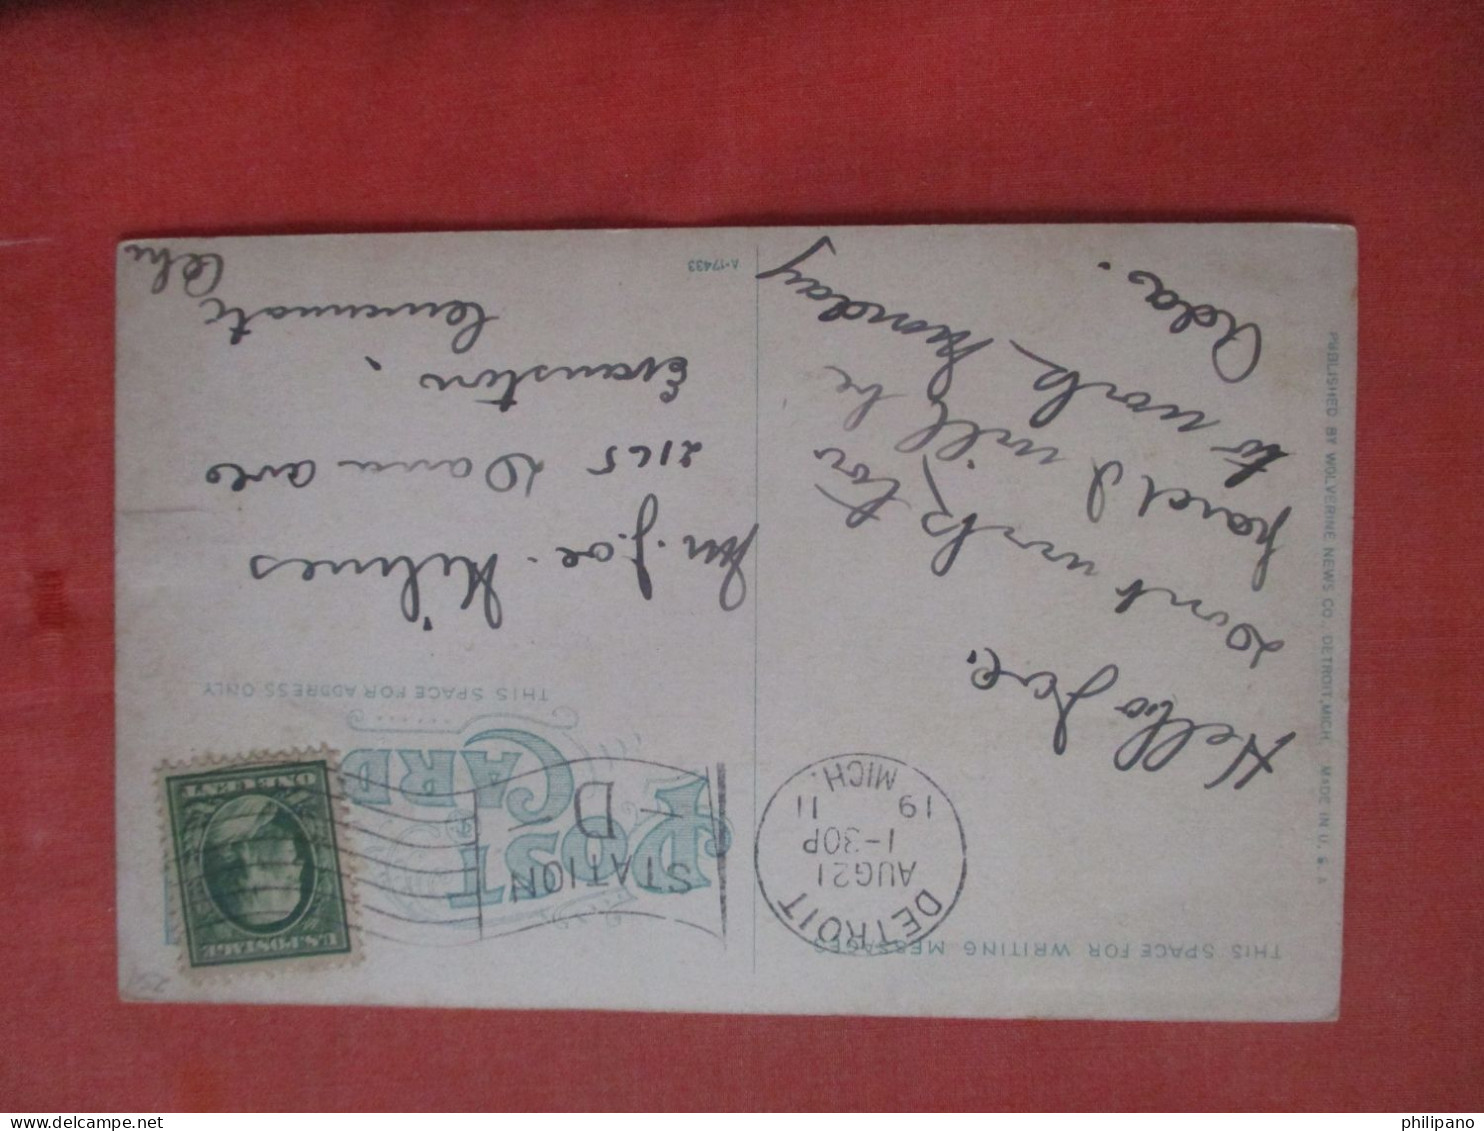 THIS SPACE FOR WRITING MESSAGES
DETROIT
AUG 21
1-30P
19 11
MICH.
STATION
D
POST
CARD
U.S. POSTAGE
ONE CENT
THIS SPACE FOR ADDRESS ONLY
Hello Joe.
Dont work too
hard I will be
to work Monday
Ada.
Mr. Joe. Hilmes
2165 Dana ave
Evanston.
Cincinnati
Ohi
A-17433
PUBLISHED BY WOLVERINE NEWS CO., DETROIT, MICH. MADE IN U. S. A.
philipano